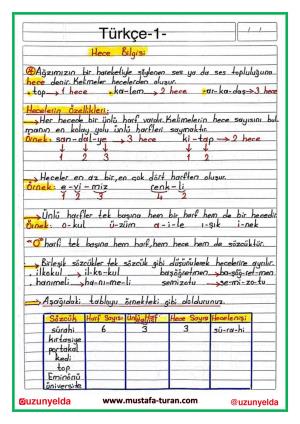 Türkçe-1-
Hece Bilgisi
Ağzımızın bir hareketiyle söylenen ses ya da ses topluluğuna
hece denir. Kelimeler hecelerden oluşur.
top → 1 hece ka-lem → 2 hece ar-ka-daş → 3 hece
Hecelerin Özellikleri:
→ Her hecede bir ünlü harf vardır. Kelimelerin hece sayısını bul-
manın en kolay yolu ünlü harfleri saymaktır.
Örnek: san-dal-ye → 3 hece ki-tap → 2 hece
1 2 3 1 2
→ Heceler en az bir, en çok dört harften oluşur.
Örnek: e-vi-miz renk-li
1 2 3 4 2
→ Ünlü harfler tek başına hem bir harf hem de bir hecedir.
Örnek: o-kul ü-züm a-i-le ı-şık i-nek
"O" harfi tek başına hem harf, hem hece hem de sözcüktür.
→ Birleşik sözcükler tek sözcük gibi düşünülerek hecelerine ayrılır.
ilkokul → il-ko-kul başöğretmen → ba-şöğ-ret-men
hanımeli → ha-nı-me-li semizotu → se-mi-zo-tu
→ Aşağıdaki tabloyu örnekteki gibi doldurunuz.
Sözcük Harf Sayısı Ünlü Harf Sayısı Hece Sayısı Hecelenişi
sürahi 6 3 3 sü-ra-hi
kırtasiye
portakal
kedi
top
Eminönü
üniversite
@uzunyelda www.mustafa-turan.com @uzunyelda